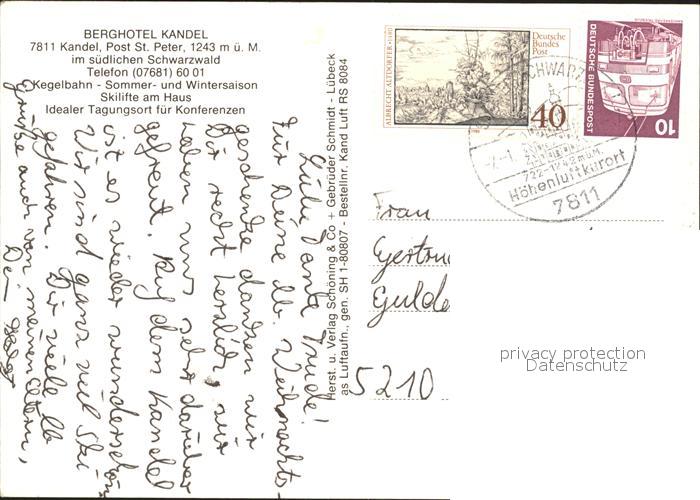 BERGHOTEL KANDEL
7811 Kandel, Post St. Peter, 1243 m ü. M.
im südlichen Schwarzwald
Telefon (07681) 60 01
Kegelbahn - Sommer- und Wintersaison
Skilifte am Haus
Idealer Tagungsort für Konferenzen
Liebe Tante Trude!
Für Deine lb. Weihnachts-
geschenke danken wir
Dir recht herzlich, wir
haben uns sehr darüber
gefreut. Auf dem Kandel
ist es wieder wunderschön
Wir sind ganz viel Ski
gefahren. Dir viele lb
Grüße auch von meinen Eltern,
Dein
Herst. u. Verlag Schöning & Co + Gebrüder Schmidt - Lübeck
als Luftaufn., gen. SH 1-80807 - Bestellnr. Kand Luft RS 8084
ALBRECHT ALTDORFER
Deutsche
Bundes
Post
40
DEUTSCHE BUNDESPOST
10
SCHWARZ
722-1242 m ü.M.
Höhenluftkurort
7811
Frau
Gertru
Gulde
5210
privacy protection
Datenschutz